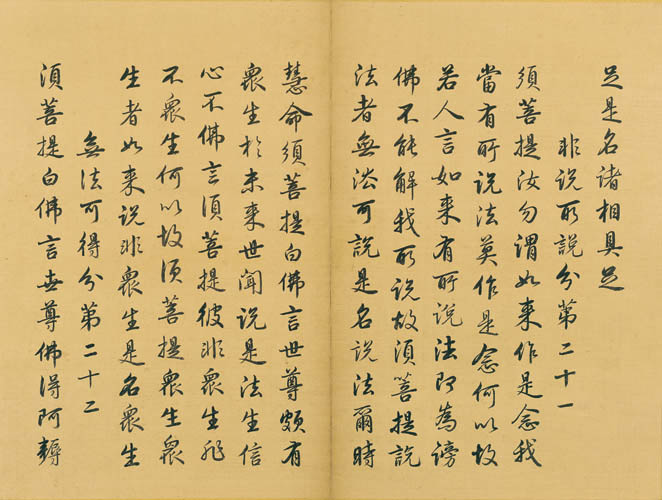 足是名諸相具足
非說所說分第二十一
須菩提汝勿謂如來作是念我
當有所說法莫作是念何以故
若人言如來有所說法即為謗
佛不能解我所說故須菩提說
法者無法可說是名說法爾時
慧命須菩提白佛言世尊頗有
衆生於未來世聞說是法生信
心不佛言須菩提彼非衆生非
不衆生何以故須菩提衆生衆
生者如來說非衆生是名衆生
無法可得分第二十二
須菩提白佛言世尊佛得阿耨